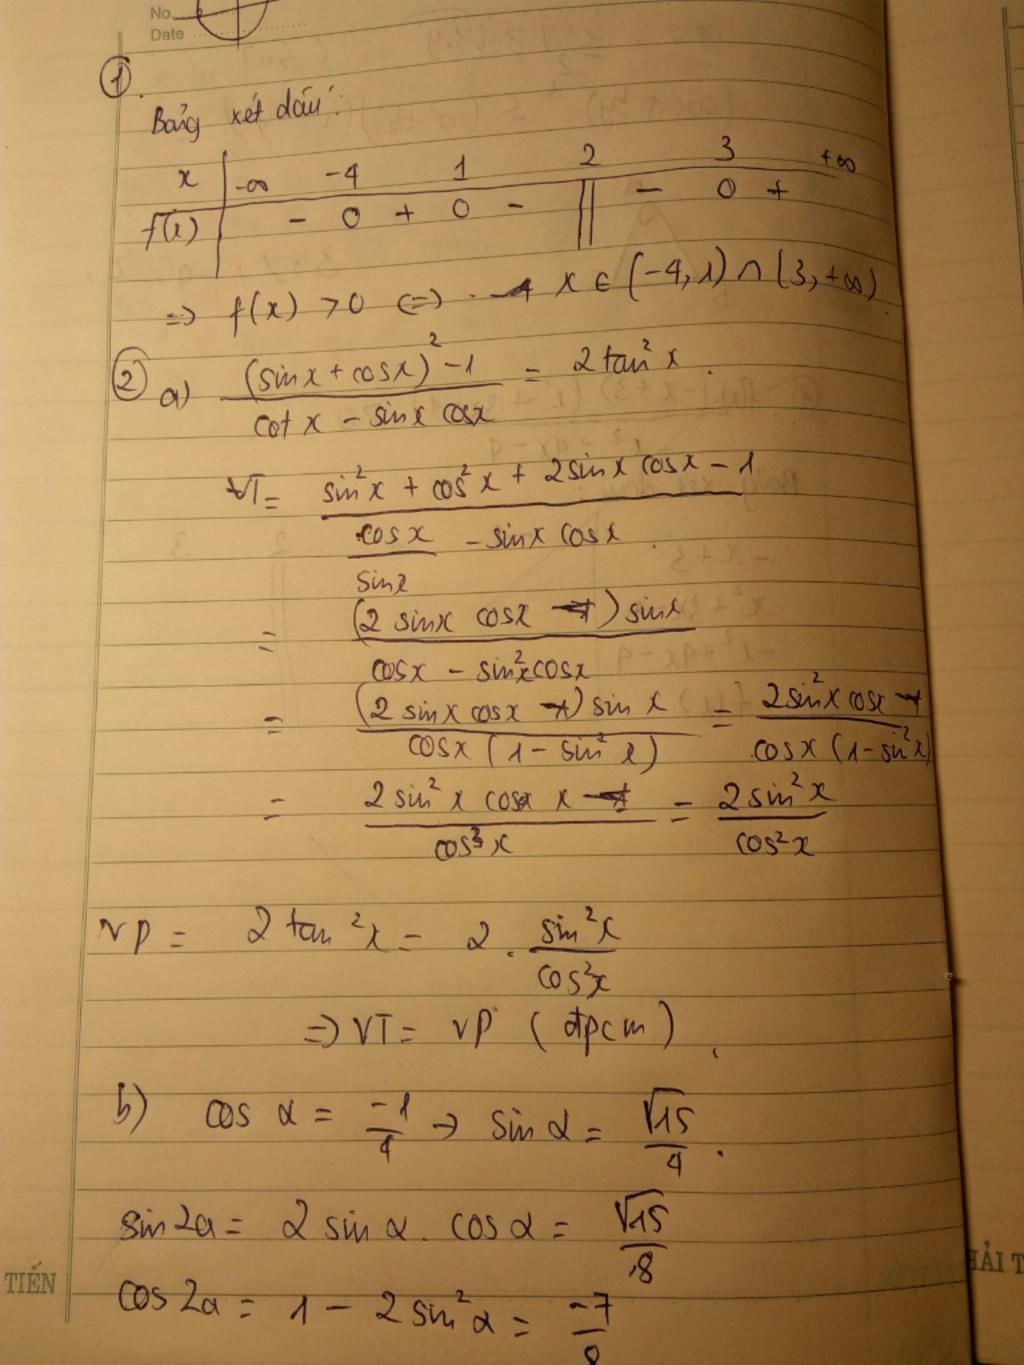 No
Date
①.
Bảng xét dấu:
x | -∞ -4 1 2 3 +∞
f(x) | - 0 + 0 - || - 0 +
=> f(x) > 0 <=> x ∈ (-4, 1) ∩ (3, +∞)
② a) ((sinx + cosx)² - 1)/(cot x - sinx cosx) = 2tan²x.
VT = (sin²x + cos²x + 2sinx cosx - 1)/(cosx/sinx - sinx cosx)
= ((2 sinx cosx) sinx)/(cosx - sin²x cosx)
= ((2 sinx cosx) sinx)/(cosx (1 - sin²x)) = (2sin²x cosx)/(cosx (1 - sin²x))
= (2 sin²x cosx x)/(cos³x) = (2sin²x)/(cos²x)
VP = 2 tan²x = 2. (sin²x)/(cos²x)
=> VT = VP (đpcm).
b) cos α = -1/4 → sin α = √15/4.
sin2a = 2 sin α. cos α = √15/8
cos2a = 1 - 2sin²α = -7/8
TIẾN
HẢI T